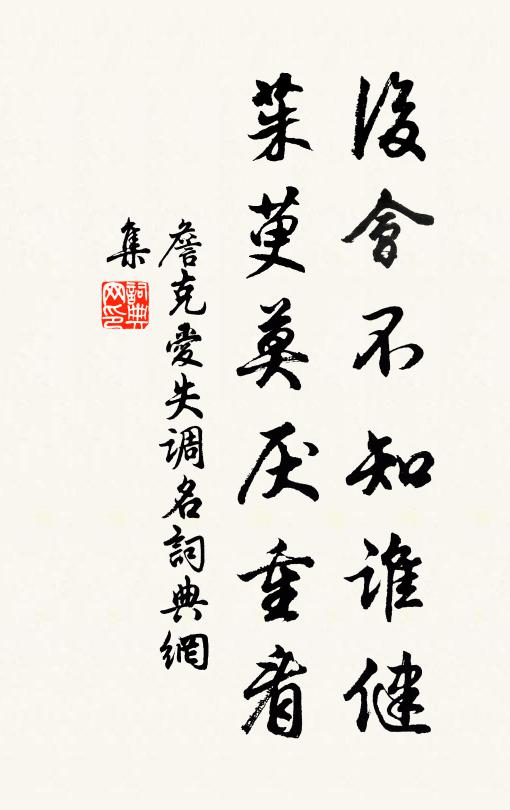 後會不知誰健
茱萸莫厌重看
詹克愛失调名詞典網
集
詞典
网印